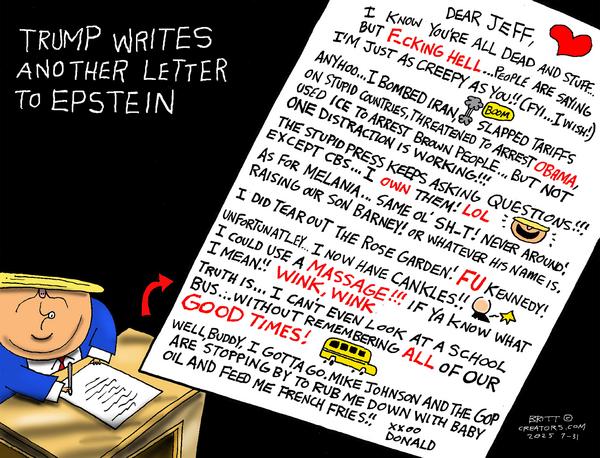 TRUMP WRITES
ANOTHER LETTER
TO EPSTEIN
DEAR JEFF,
I KNOW YOU'RE ALL DEAD AND STUFF...
BUT F--CKING HELL... PEOPLE ARE SAYING
I'M JUST AS CREEPY AS YOU!! (FYI... I WISH!)
ANYHOO... I BOMBED IRAN, BOOM SLAPPED TARIFFS
ON STUPID COUNTRIES, THREATENED TO ARREST OBAMA,
USED ICE TO ARREST BROWN PEOPLE... BUT NOT
ONE DISTRACTION IS WORKING!!!
THE STUPID PRESS KEEPS ASKING QUESTIONS!!!
EXCEPT CBS... I OWN THEM! LOL
AS FOR MELANIA... SAME OL' SH-T! NEVER AROUND!
RAISING OUR SON BARNEY! OR WHATEVER HIS NAME IS.
I DID TEAR OUT THE ROSE GARDEN! FU KENNEDY!
UNFORTUNATLEY... I NOW HAVE CANKLES!!
I COULD USE A MASSAGE!!! IF YA KNOW WHAT
I MEAN!! WINK, WINK
TRUTH IS... I CAN'T EVEN LOOK AT A SCHOOL
BUS... WITHOUT REMEMBERING ALL OF OUR
GOOD TIMES!
WELL, BUDDY, I GOTTA GO. MIKE JOHNSON AND THE GOP
ARE STOPPING BY TO RUB ME DOWN WITH BABY
OIL AND FEED ME FRENCH FRIES!!
XXOO
DONALD
BRITT ©
CREATORS.COM
2025 7-31